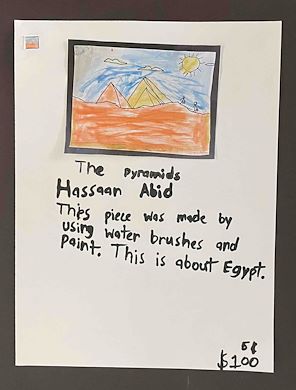 The pyramids
Hassaan Abid
This piece was made by
using water brushes and
paint. This is about Egypt.
$100